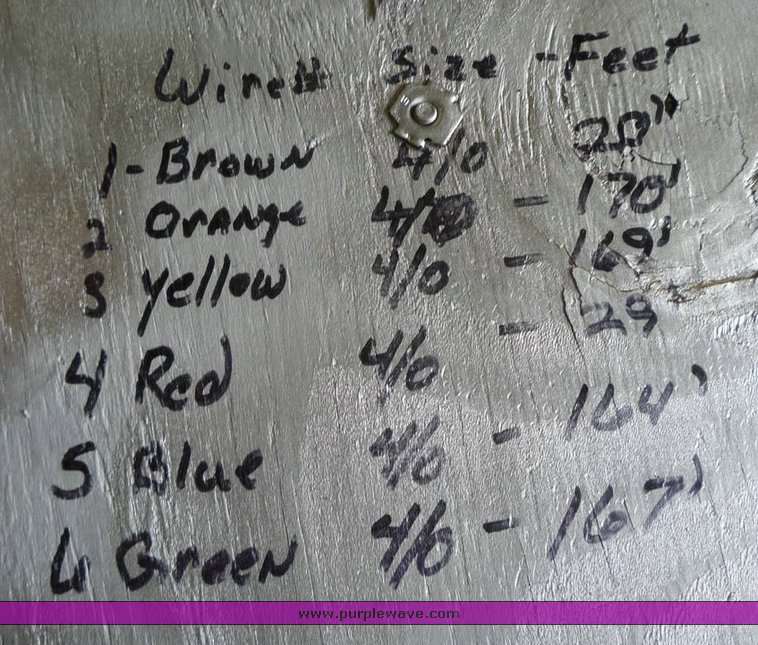 Wire# Size - Feet
1 - Brown 4/0 28"
2 Orange 4/0 - 170'
3 Yellow 4/0 - 169'
4 Red 4/0 - 29"
5 Blue 4/0 - 164'
6 Green 4/0 - 167'
www.purplewave.com